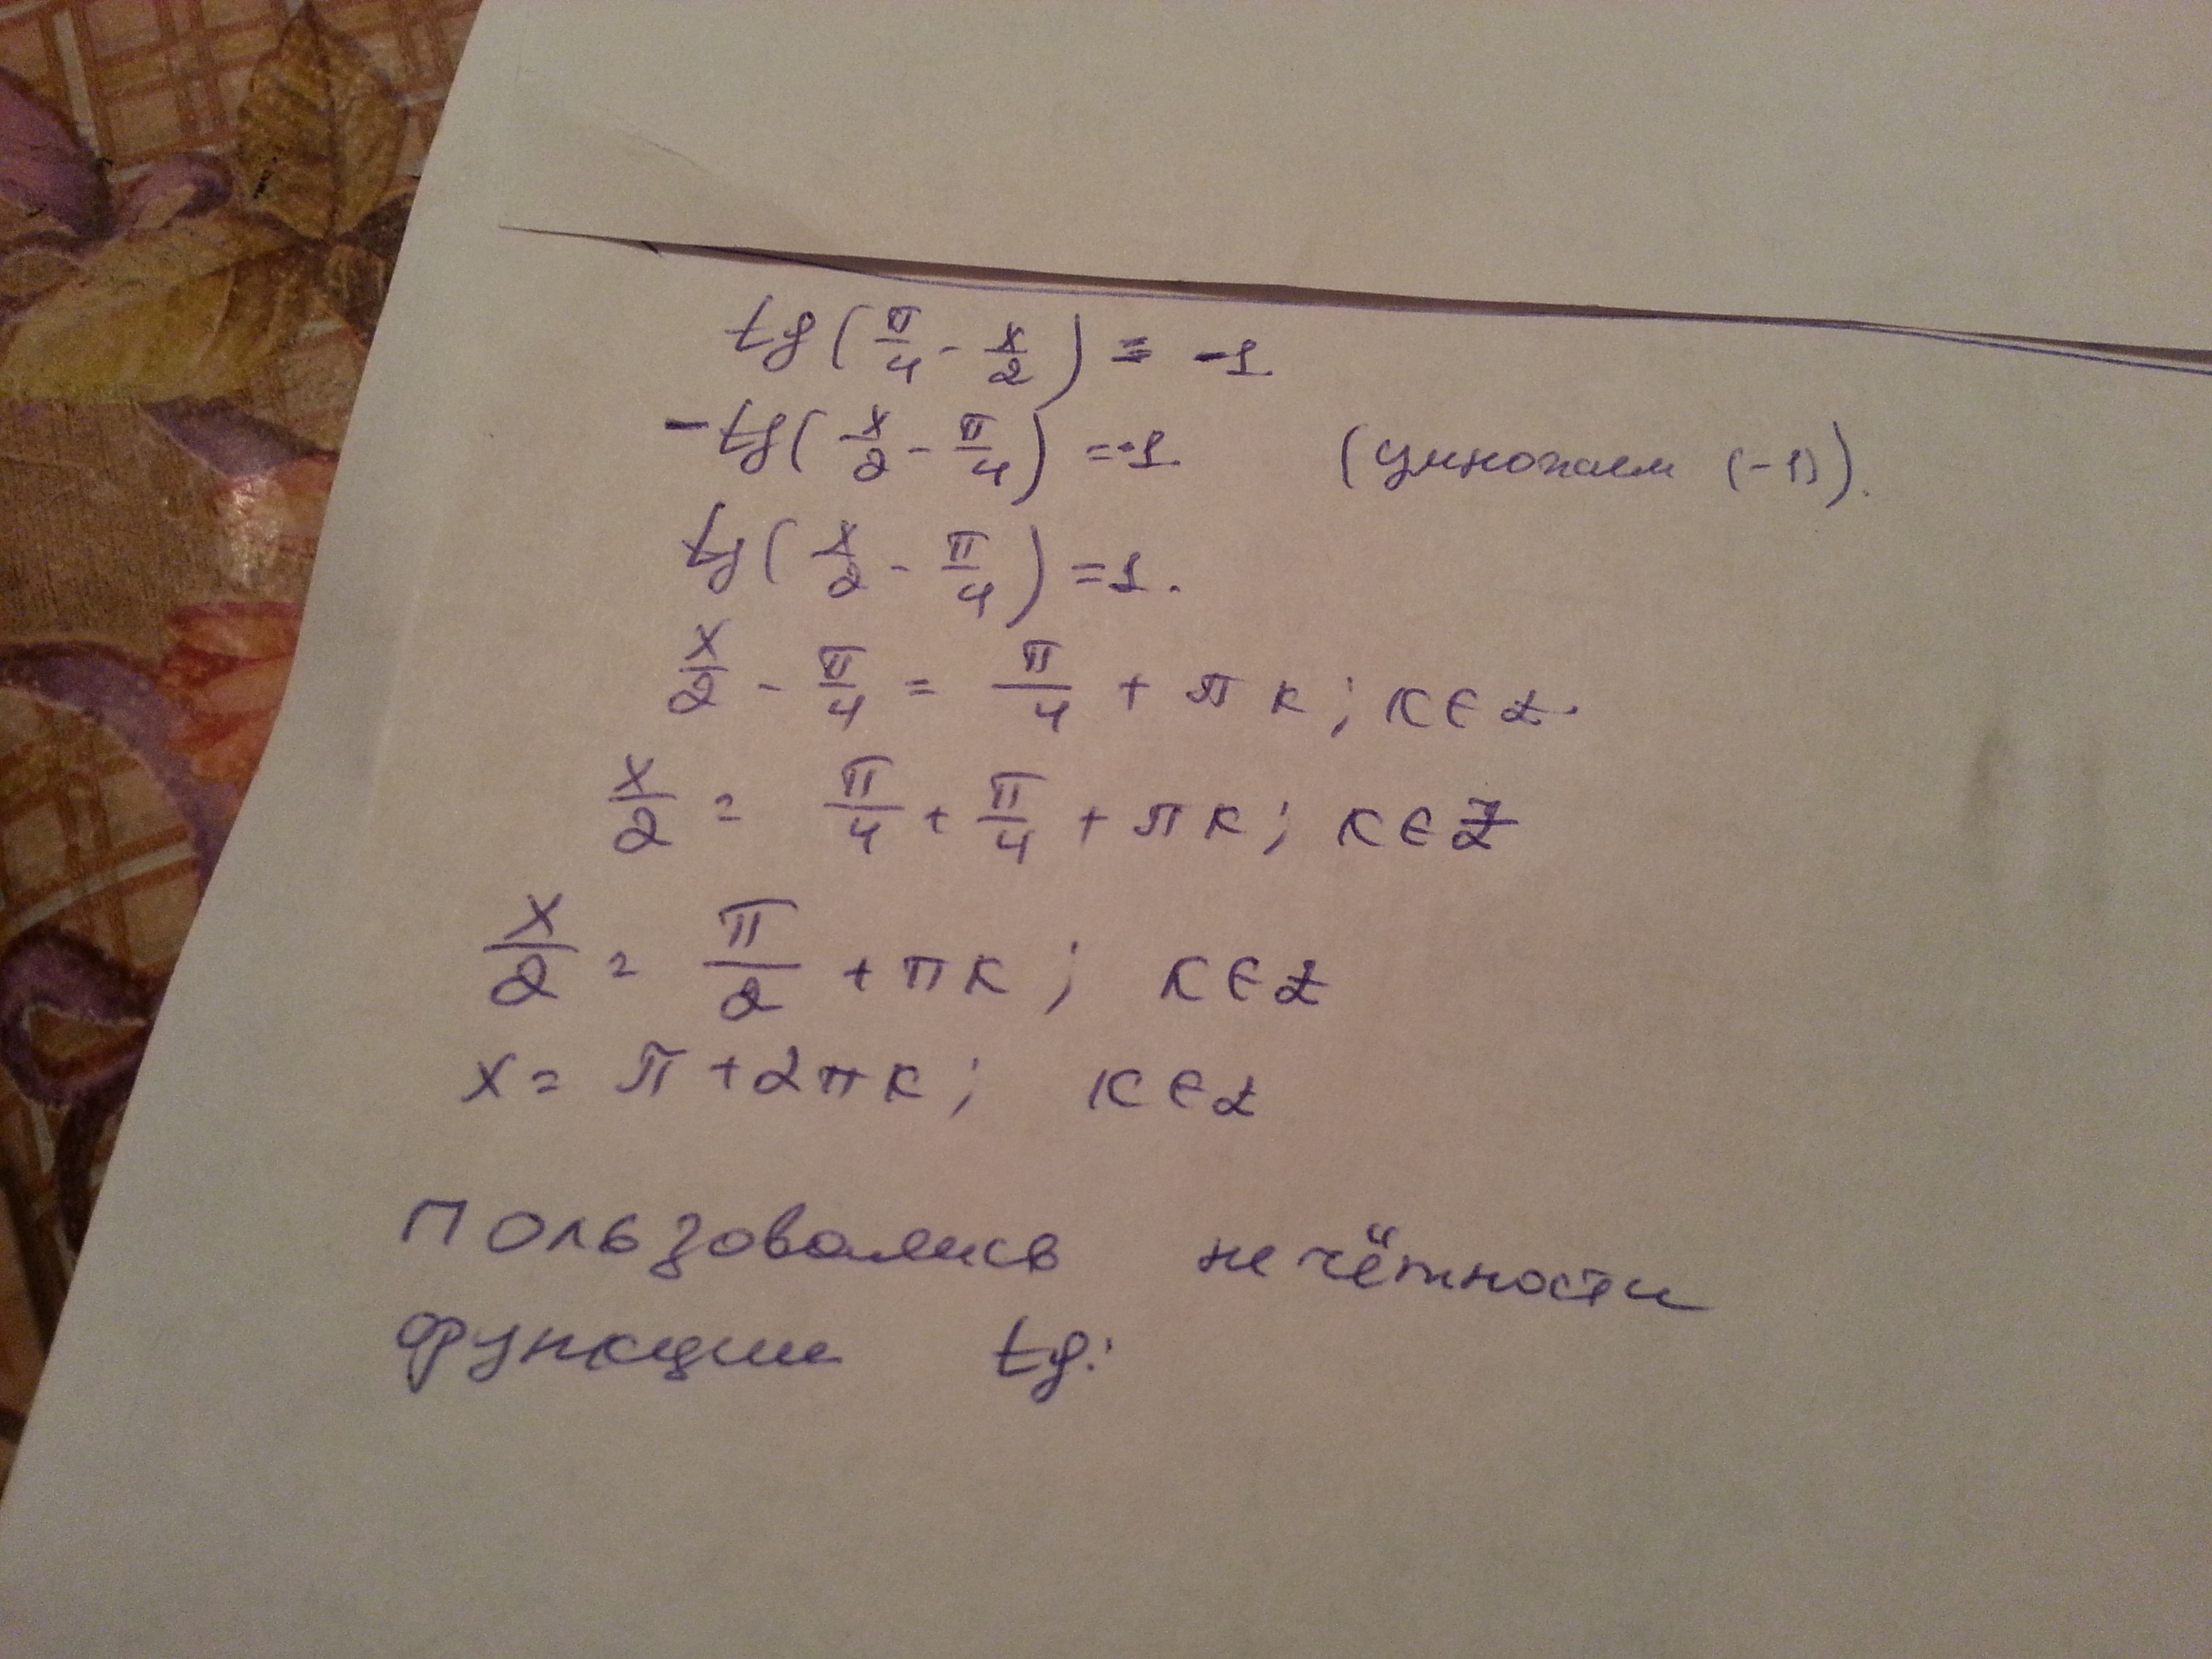 tg(π/4 - x/2) = -1
-tg(x/2 - π/4) = -1 (умножаем (-1)).
tg(x/2 - π/4) = 1.
x/2 - π/4 = π/4 + πк; к∈Z.
x/2 = π/4 + π/4 + πк; к∈Z
x/2 = π/2 + πк; к∈Z
x = π + 2πк; к∈Z
Пользовались нечётности
функции tg.